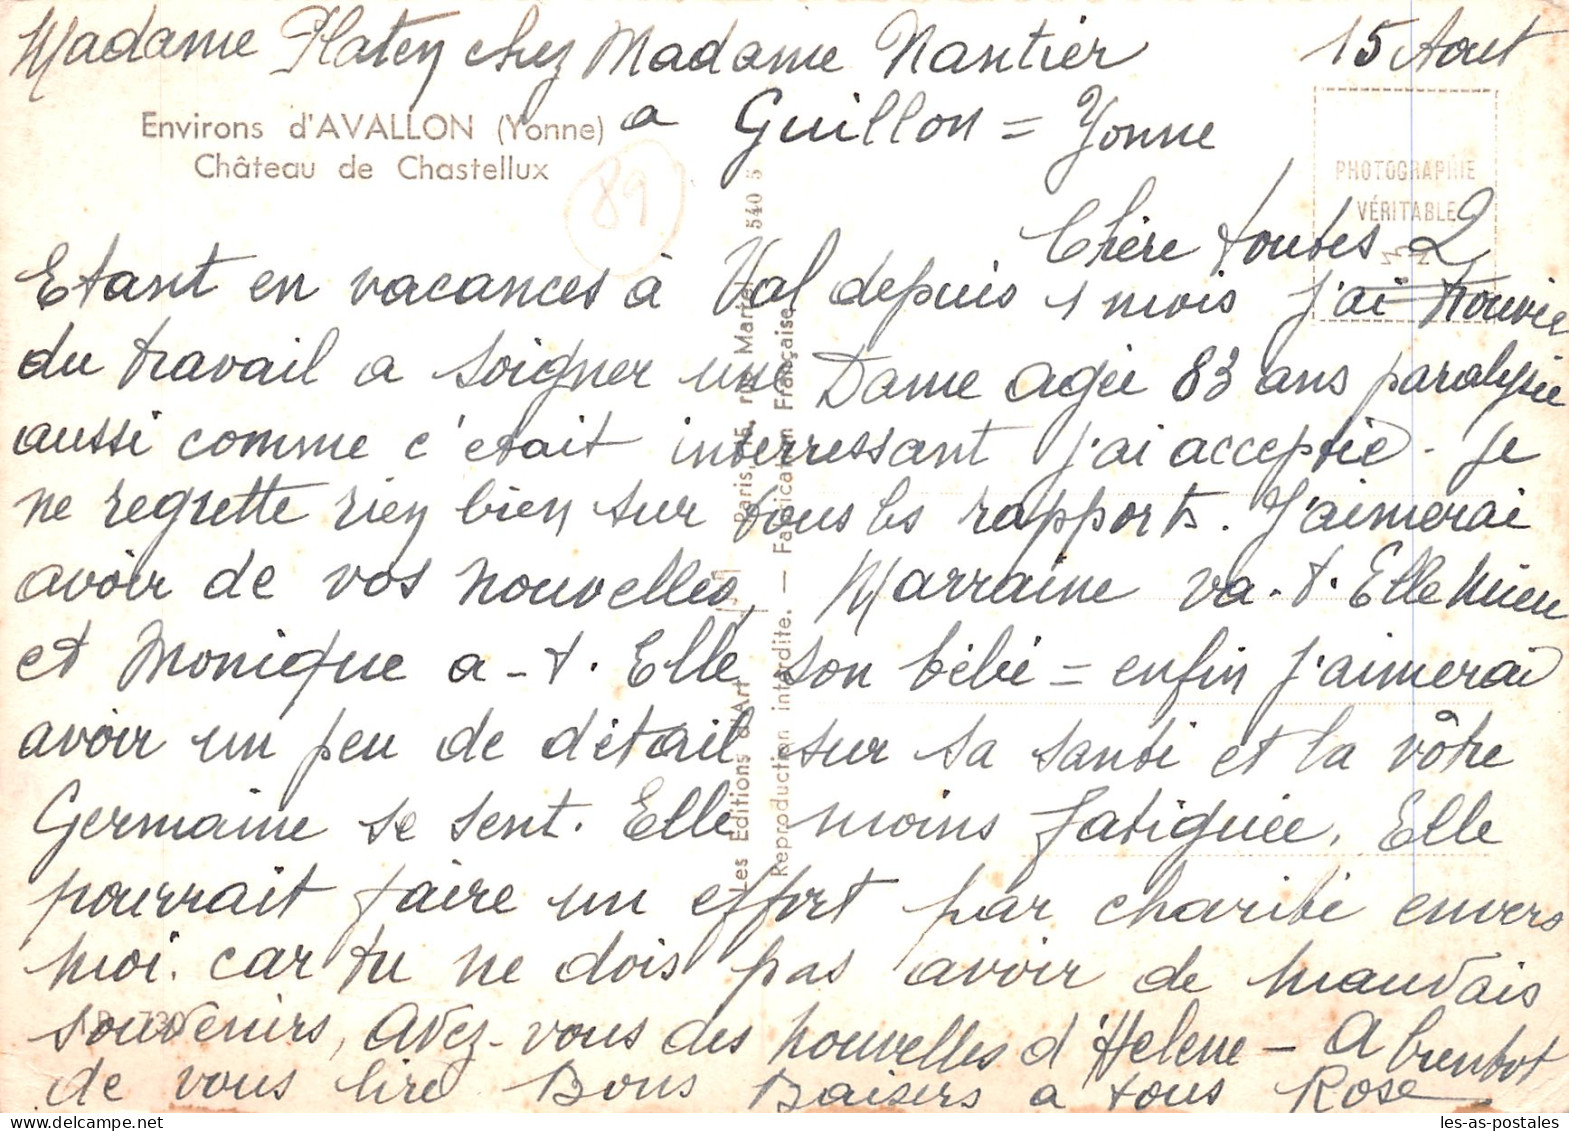 Madame Platey chez Madame Nantier
15 Aout
Environs d'AVALLON (Yonne)
Château de Chastellux
a Guillon = Yonne
89
PHOTOGRAPHIE
VÉRITABLE
Chère toutes 2
Etant en vacances à Val depuis 1 mois J'ai trouvée
du travail a soigner une Dame agée 83 ans paralysée
aussi comme c'etait interressant j'ai acceptée - Je
ne regrette riey biey sur tous les rapports. J'aimerai
avoir de vos nouvelles, Marraine va-t-Elle mieu
et Monique a-t-Elle son bébé = enfin j'aimerai
avoir un peu de détail sur sa santé et la vôtre
Germaine se sent-Elle moins fatiguée. Elle
pourrait faire un effort par charité envers
moi. car tu ne dois pas avoir de mauvais
souvenirs, avez-vous des nouvelles d'Helene - A bientot
de vous lire Bons Baisers a tous Rose
Les Editions d'Art Paris, 15, rue Martel 540 5
Reproduction interdite. — Fabrication Française
les-as-postales